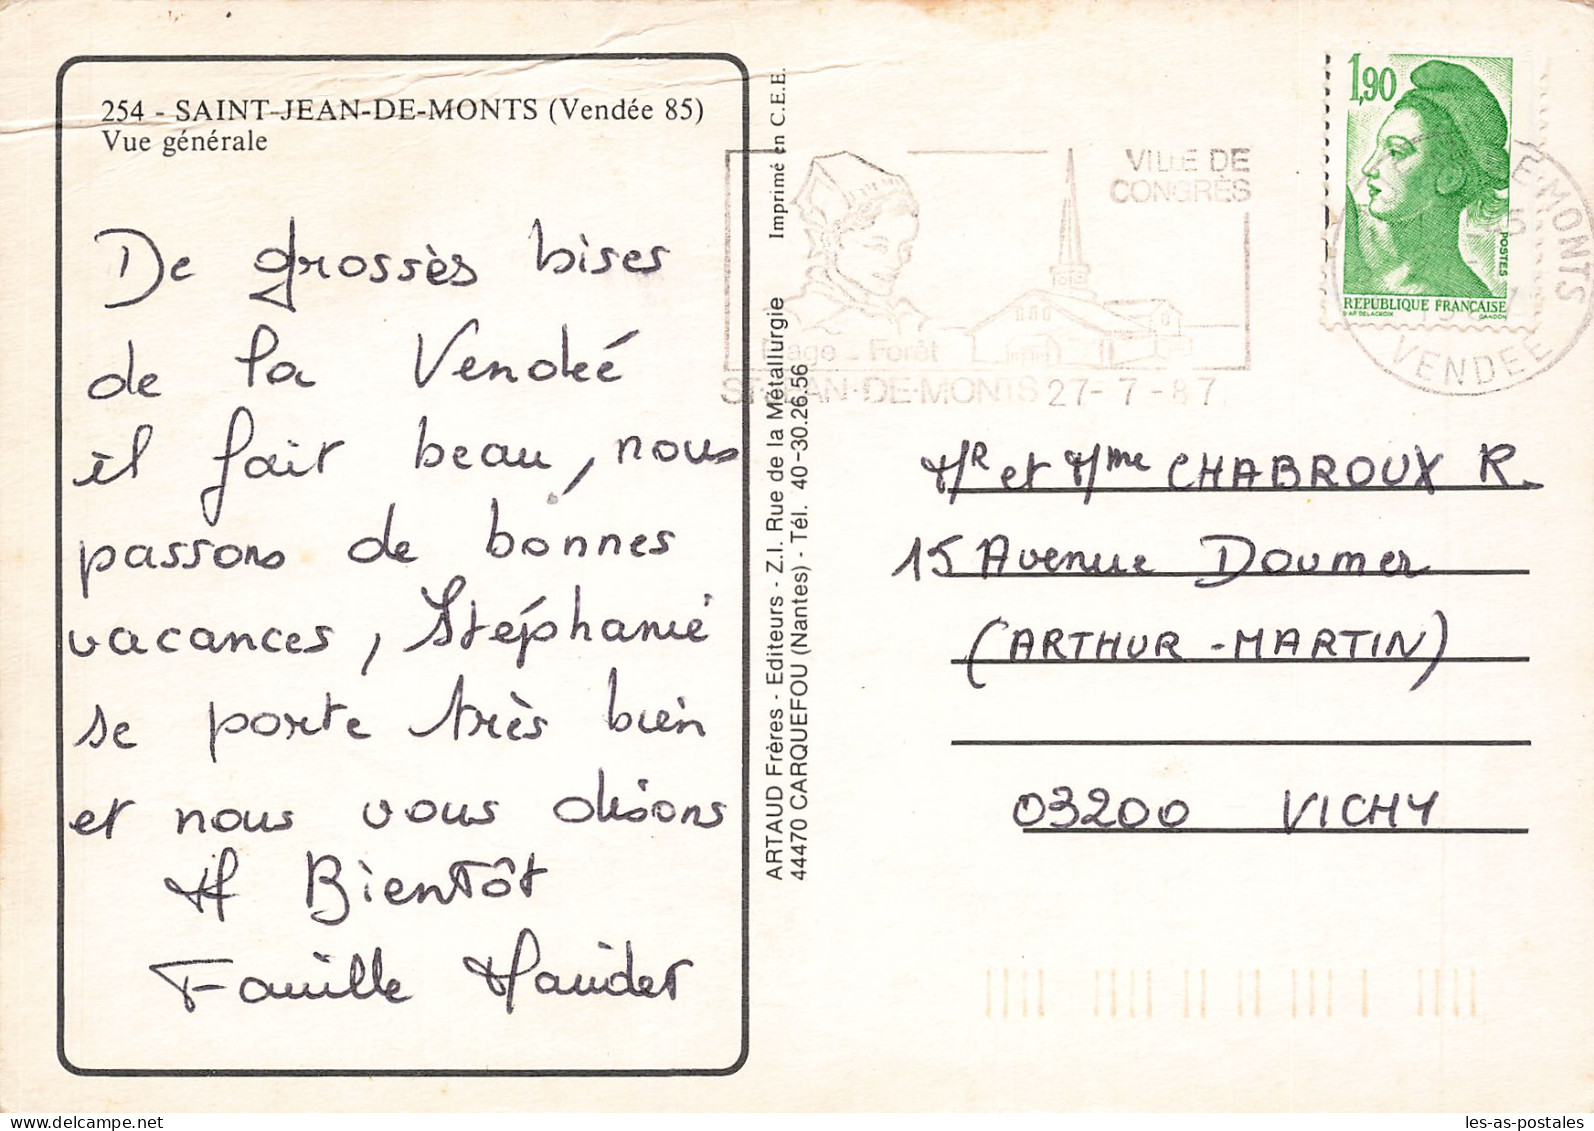 254 - SAINT-JEAN-DE-MONTS (Vendée 85)
Vue générale
De grossès bises
de la Vendéé
il fait beau, nous
passons de bonnes
vacances, Stéphanie
se porte très bien
et nous vous disons
A Bientôt
Famille
ARTAUD Frères - Editeurs - Z.I. Rue de la Métallurgie Imprimé en C.E.E.
44470 CARQUEFOU (Nantes) - Tél. 40-30.26.56
VILLE DE
CONGRÈS
Plage - Forêt
ST-JEAN-DE-MONTS 27-7-87
1,90
POSTES
REPUBLIQUE FRANÇAISE
D'AP. DELACROIX GANDON
E-MONTS
VENDEE
Mr et Mme CHABROUX R.
15 Avenue Doumer
(ARTHUR-MARTIN)
03200 VICHY
les-as-postales